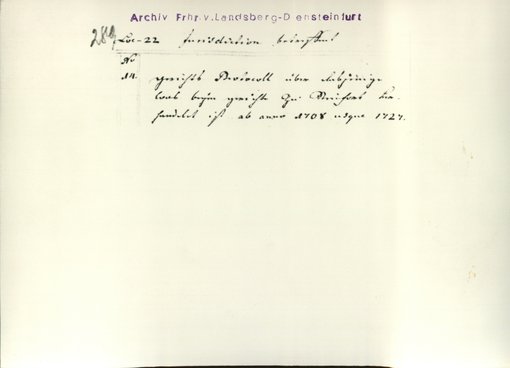 Archiv Frhr.v.Landsberg-D ensteinfurt
289 Loc-22 Jurisdiction
No
14. gerichts Protocoll über dasjenige
was beym gerichte zu ver-
handelt ist ab anno 1708 usque 1727.